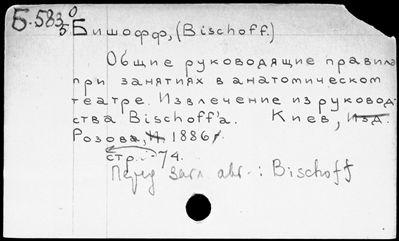 Б.583/5 0
Бишофф, (Bischoff.)
Общие руководящие правила
при занятиях в анатомическом
театре. Извлечение из руковод-
ства Bischoff'а. Киев, Изд.
Розова, Н. 1886 г.
стр. - 74.
Перед загл. авт.: Bischoff